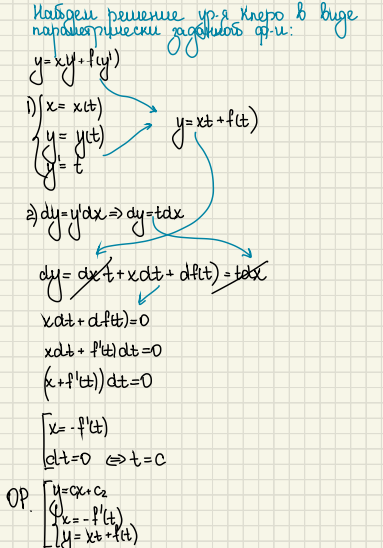 Найдем решение ур-я Клеро в виде
параметрически заданной ф-и:
y = xy' + f(y')
1) { x = x(t)
y = y(t)
y' = t
y = xt + f(t)
2) dy = y'dx => dy = tdx
dy = dxt + xdt + df(t) = tdx
xdt + df(t) = 0
xdt + f'(t)dt = 0
(x + f'(t))dt = 0
[ x = -f'(t)
dt = 0 <=> t = C
ОР. [ y = cx + c₂
{ x = -f'(t)
y = xt + f(t)